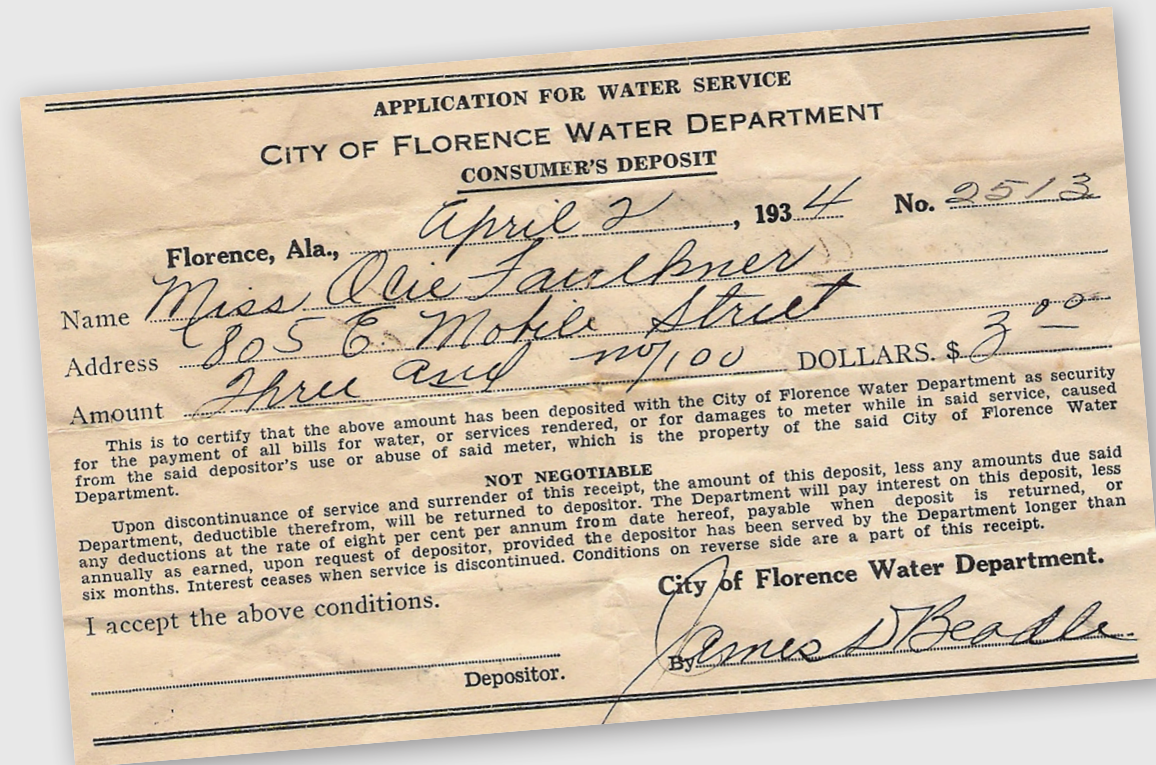 APPLICATION FOR WATER SERVICE
CITY OF FLORENCE WATER DEPARTMENT
CONSUMER'S DEPOSIT
Florence, Ala., April 2, 1934 No. 2513
Name Miss Olie Faulkner
Address 805 E Mobile Street
Amount Three and no/100 DOLLARS. $ 3 00
This is to certify that the above amount has been deposited with the City of Florence Water Department as security
for the payment of all bills for water, or services rendered, or for damages to meter while in said service, caused
from the said depositor's use or abuse of said meter, which is the property of the said City of Florence Water
Department.
NOT NEGOTIABLE
Upon discontinuance of service and surrender of this receipt, the amount of this deposit, less any amounts due said
Department, deductible therefrom, will be returned to depositor. The Department will pay interest on this deposit, less
any deductions at the rate of eight per cent per annum from date hereof, payable when deposit is returned, or
annually as earned, upon request of depositor, provided the depositor has been served by the Department longer than
six months. Interest ceases when service is discontinued. Conditions on reverse side are a part of this receipt.
I accept the above conditions.
City of Florence Water Department.
By James D Beadle
Depositor.